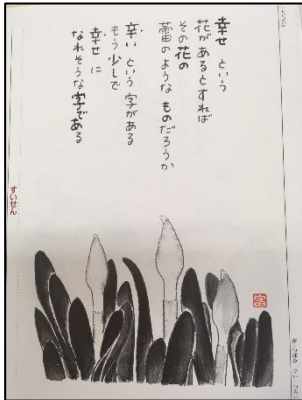 幸せ という
花があるとすれば
その花の
蕾のような ものだろうか
辛い という 字がある
もう 少しで
幸せ に
なれそうな 字である
すいせん